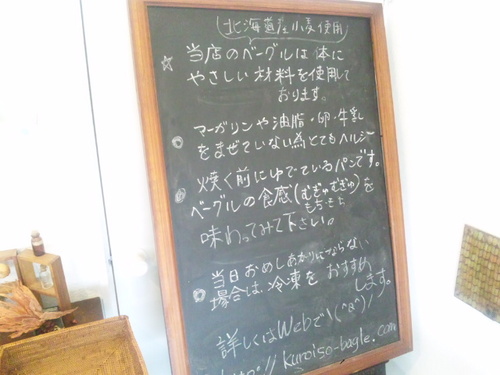 北海道産小麦使用
☆ 当店のベーグルは体に
やさしい材料を使用して
おります。
マーガリンや油脂・卵・牛乳
をまぜていない為とてもヘルシー
焼く前にゆでているパンです。
ベーグルの食感(むぎゅむぎゅ)を
もちもち
味わってみて下さい。
当日おめしあがりにならない
場合は、冷凍をおすすめ
します。
詳しくはWebで\(^8^)/
http://kuroiso-bagle.com